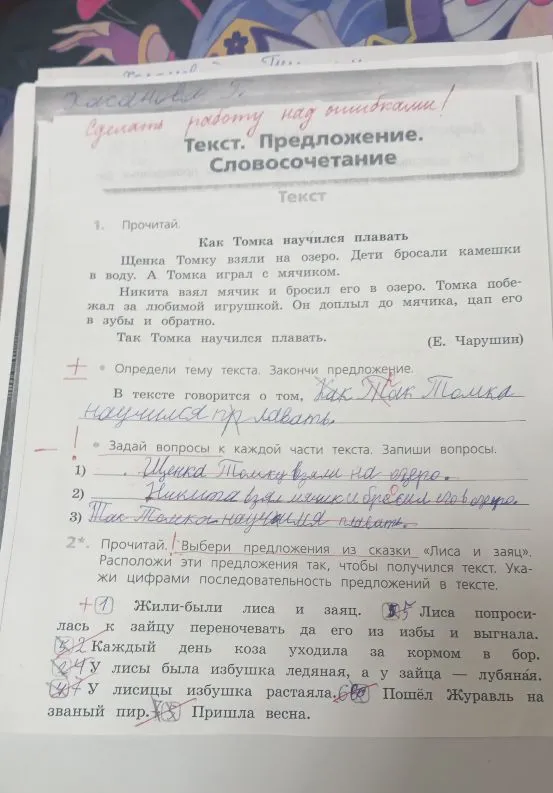 Хасанова Г.
Сделать работу над ошибками!
Текст. Предложение.
Словосочетание
Текст
1. Прочитай.
Как Томка научился плавать
Щенка Томку взяли на озеро. Дети бросали камешки
в воду. А Томка играл с мячиком.
Никита взял мячик и бросил его в озеро. Томка побе-
жал за любимой игрушкой. Он доплыл до мячика, цап его
в зубы и обратно.
Так Томка научился плавать.
(Е. Чарушин)
+ • Определи тему текста. Закончи предложение.
В тексте говорится о том, Как Так Томка
научился плавать.
— ! • Задай вопросы к каждой части текста. Запиши вопросы.
1) Щенка Томку взяли на озеро.
2) Никита взял мячик и бросил его в озеро.
3) Так Томка научился плавать.
2*. Прочитай. ! Выбери предложения из сказки «Лиса и заяц».
Расположи эти предложения так, чтобы получился текст. Ука-
жи цифрами последовательность предложений в тексте.
+ 1 Жили-были лиса и заяц. 5 Лиса попроси-
лась к зайцу переночевать да его из избы и выгнала.
2 Каждый день коза уходила за кормом в бор.
4 У лисы была избушка ледяная, а у зайца — лубяная.
7 У лисицы избушка растаяла. 6 Пошёл Журавль на
званый пир. Пришла весна.